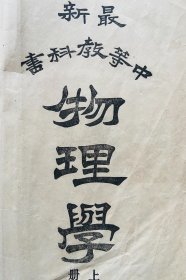 最新
中等教科書
物理學
上册